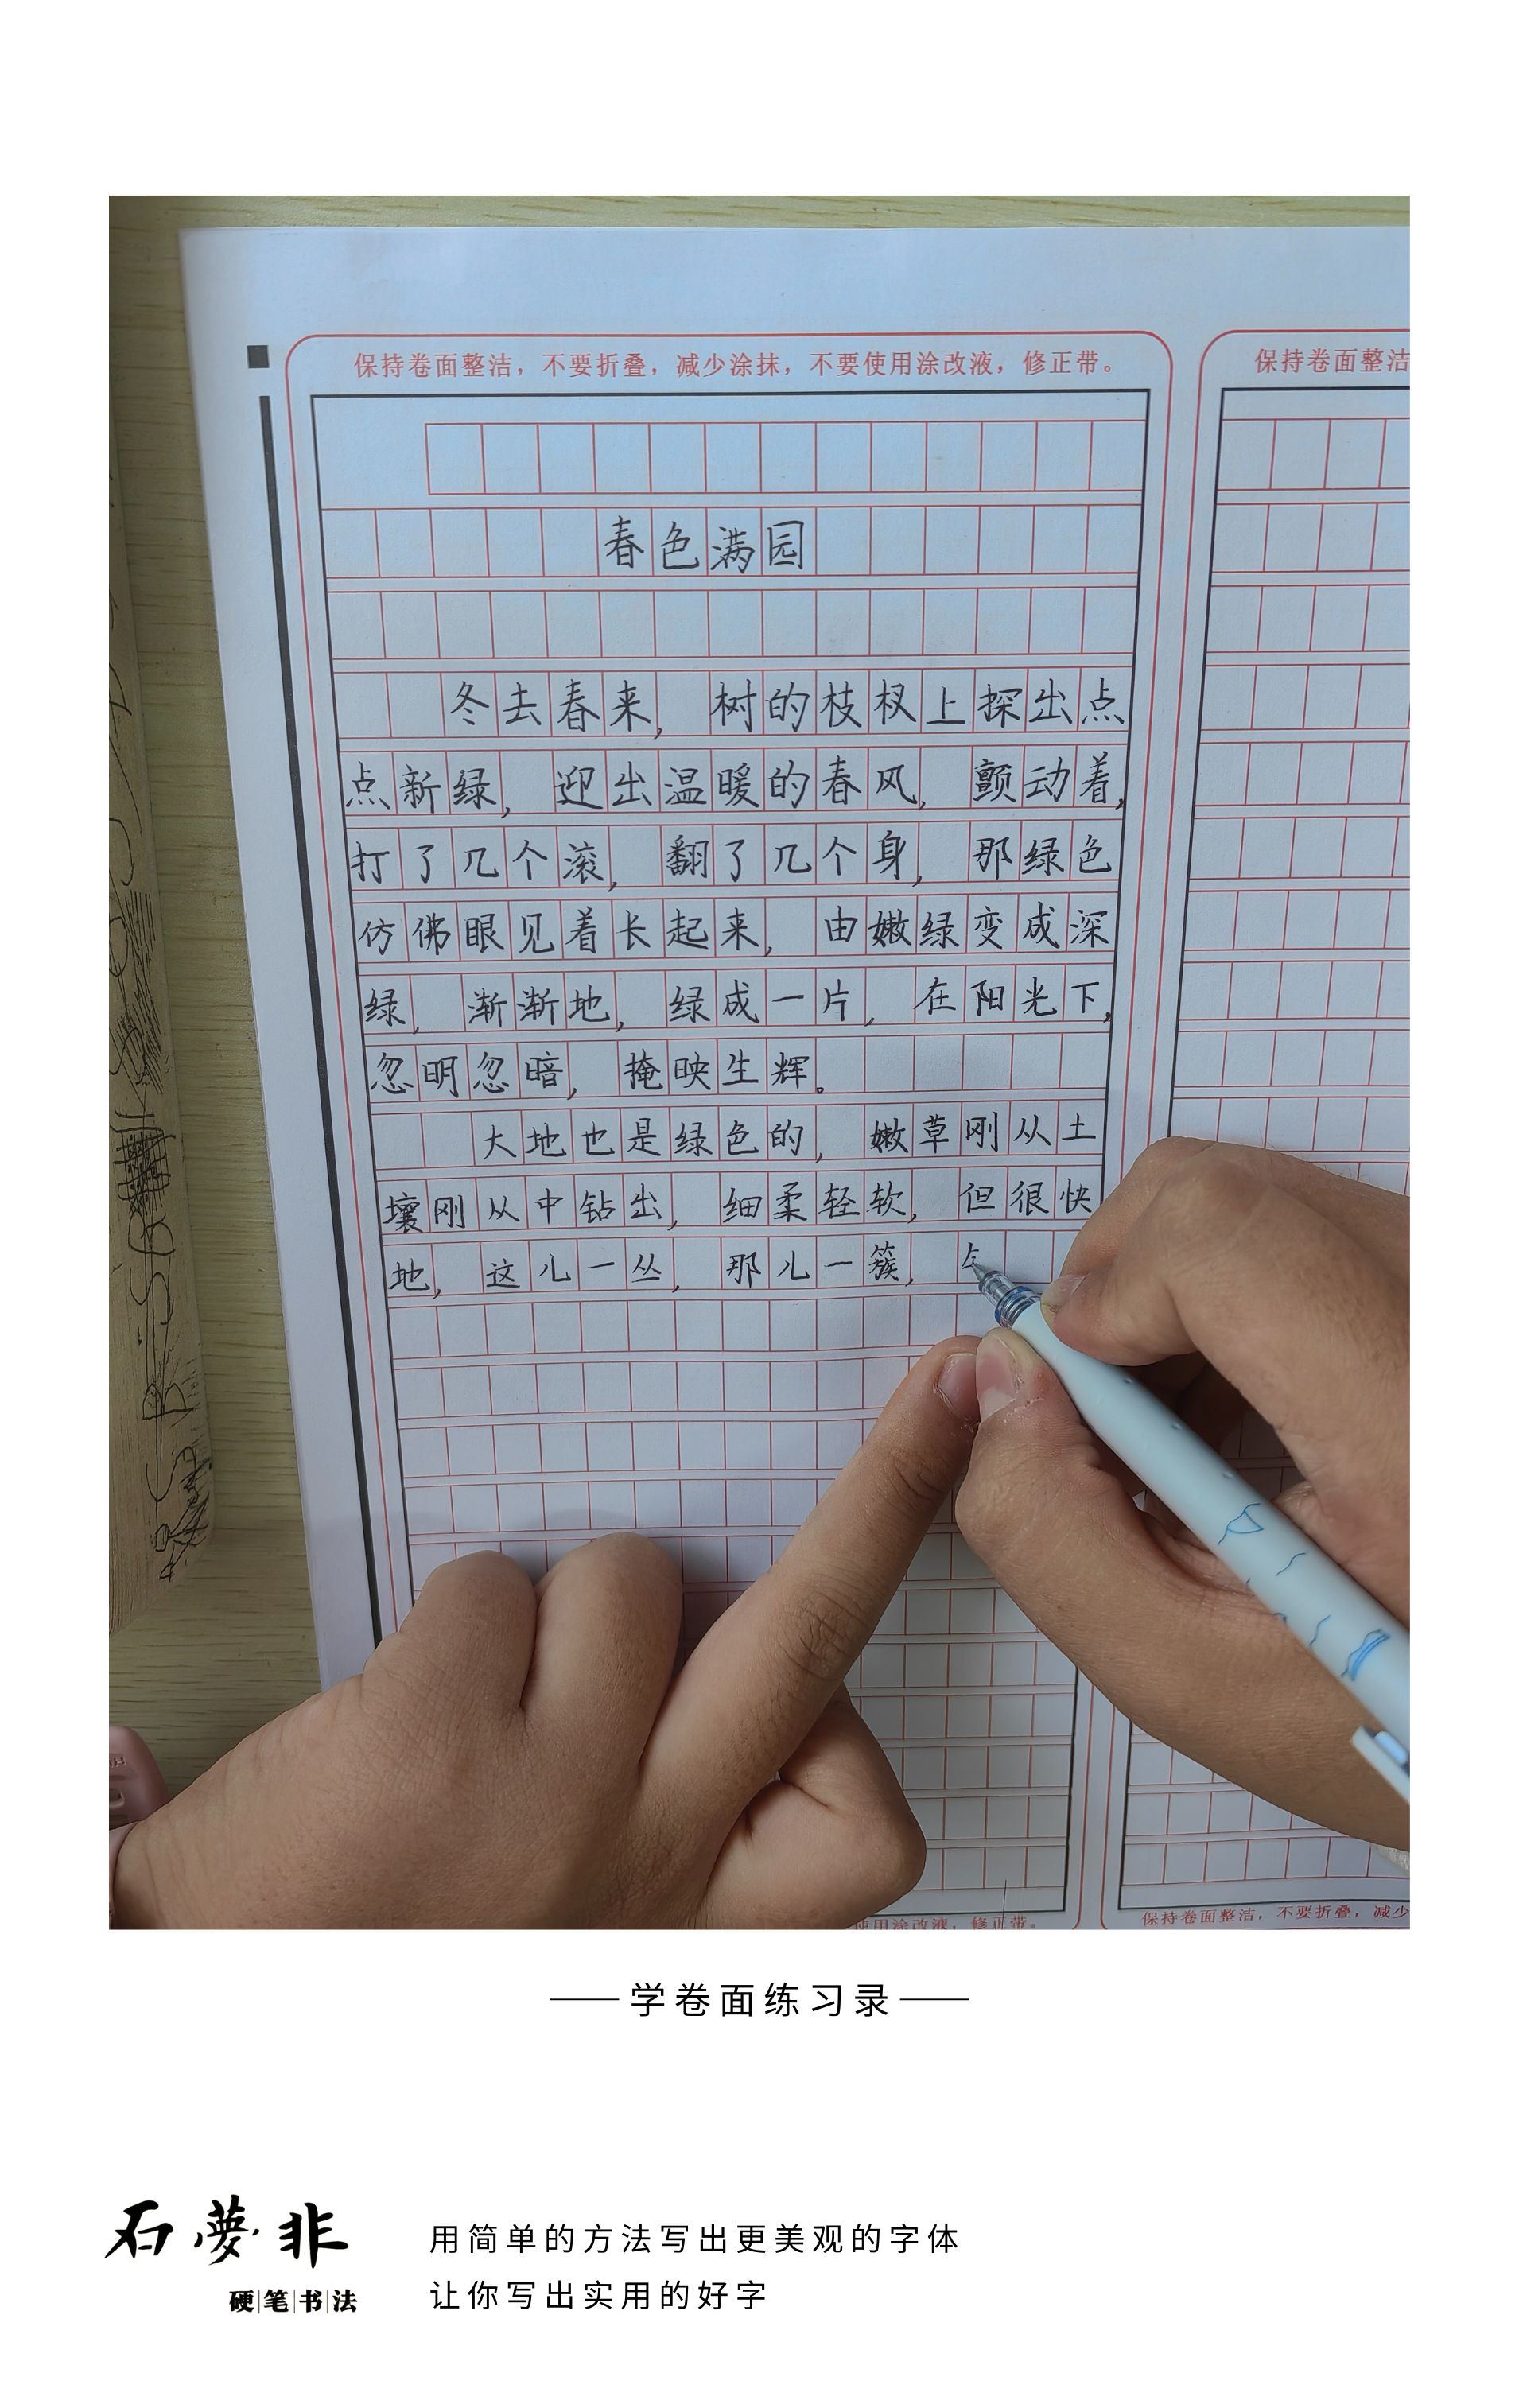 保持卷面整洁，不要折叠，减少涂抹，不要使用涂改液，修正带。
保持卷面整洁
春色满园
冬去春来，树的枝杈上探出点
点新绿，迎出温暖的春风，颤动着，
打了几个滚，翻了几个身，那绿色
仿佛眼见着长起来，由嫩绿变成深
绿，渐渐地，绿成一片，在阳光下，
忽明忽暗，掩映生辉。
大地也是绿色的，嫩草刚从土
壤刚从中钻出，细柔轻软，但很快
地，这儿一丛，那儿一簇，
使用涂改液，修正带。
保持卷面整洁，不要折叠，减少
学卷面练习录
石夢非
硬笔书法
用简单的方法写出更美观的字体
让你写出实用的好字